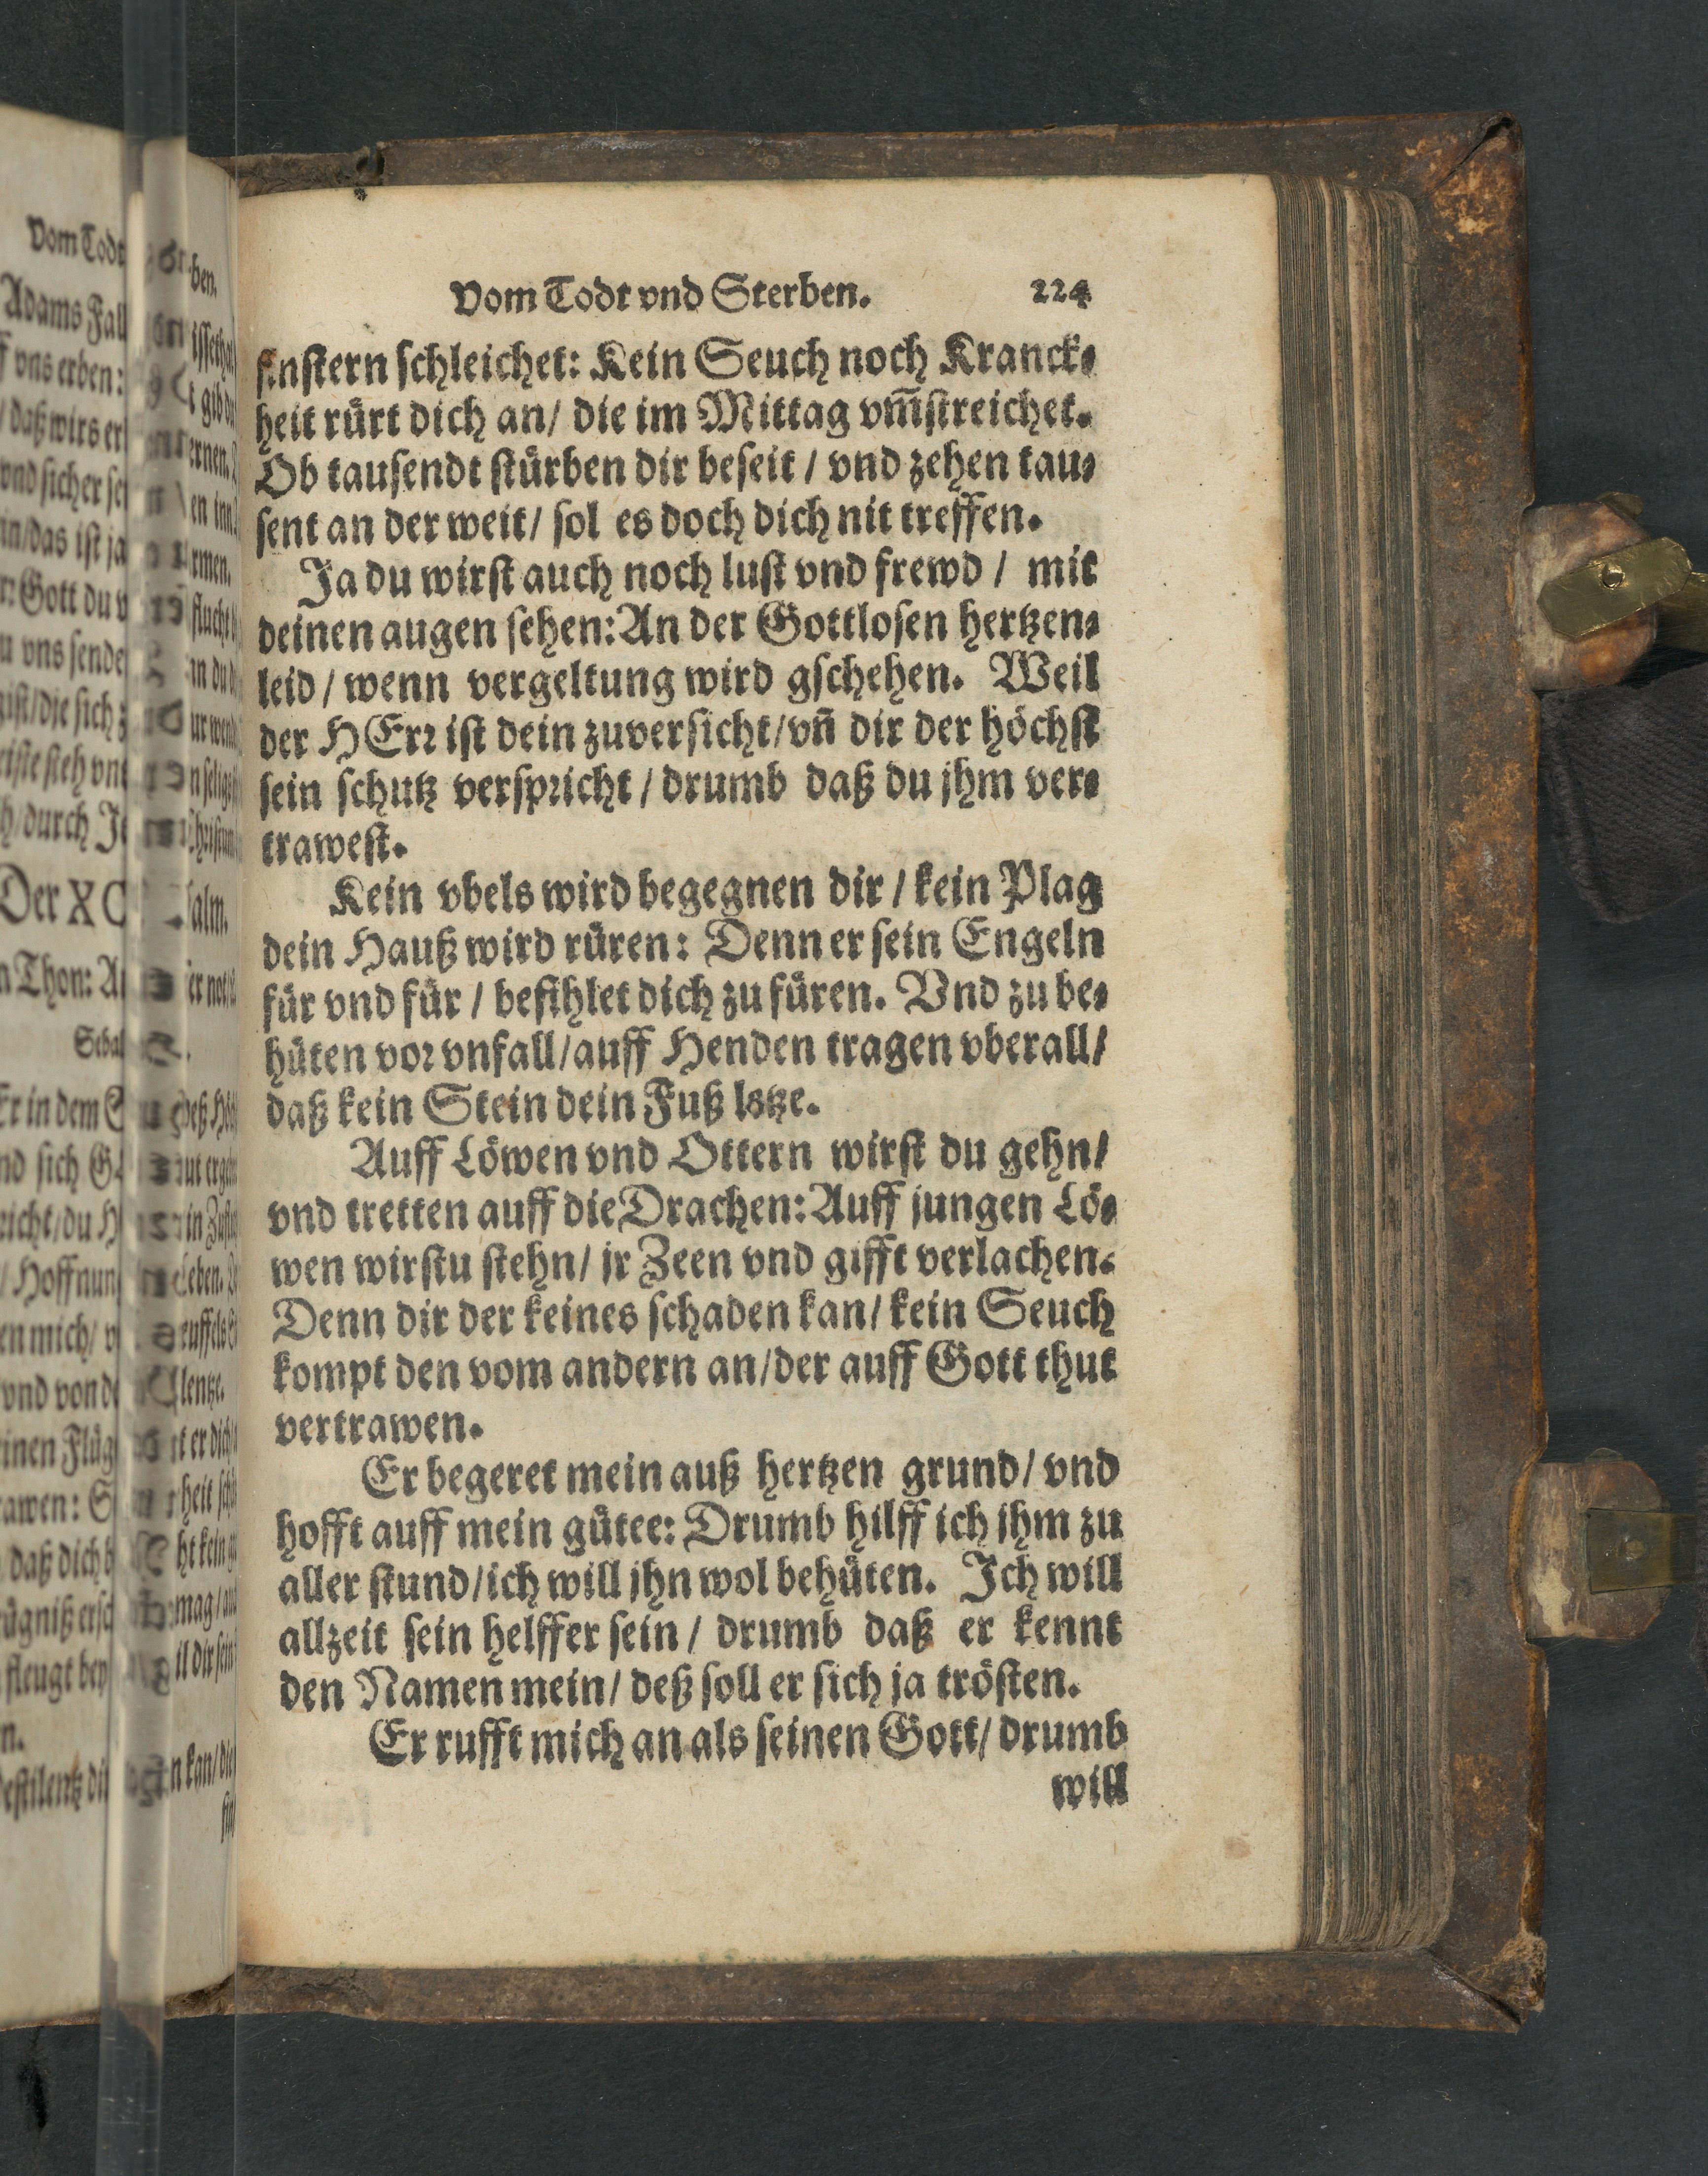 Vom Todt vnd Sterben. 224
finstern schleichet: Kein Seuch noch Kranck⸗
heit rürt dich an/ die im Mittag vm̃streichet.
Ob tausendt stürben dir beseit / vnd zehen tau⸗
sent an der weit/ sol es doch dich nit treffen.
Ja du wirst auch noch lust vnd frewd / mit
deinen augen sehen: An der Gottlosen hertzen⸗
leid / wenn vergeltung wird gschehen. Weil
der HErr ist dein zuversicht/ vñ dir der höchst
sein schutz verspricht / drumb daß du jhm ver⸗
trawest.
Kein vbels wird begegnen dir / kein Plag
dein Hauß wird rüren: Denn er sein Engeln
für vnd für / befihlet dich zu füren. Vnd zu be⸗
hüten vor vnfall/ auff Henden tragen vberall/
daß kein Stein dein Fuß lstze.
Auff Löwen vnd Ottern wirst du gehn/
vnd tretten auff die Drachen: Auff jungen Lö⸗
wen wirstu stehn/ jr Zeen vnd gifft verlachen.
Denn dir der keines schaden kan/ kein Seuch
kompt den vom andern an/ der auff Gott thut
vertrawen.
Er begeret mein auß hertzen grund/ vnd
hofft auff mein gütee: Drumb hilff ich jhm zu
aller stund/ ich will jhn wol behüten. Ich will
allzeit sein helffer sein / drumb daß er kennt
den Namen mein/ deß soll er sich ja trösten.
Er rufft mich an als seinen Gott/ drumb
will